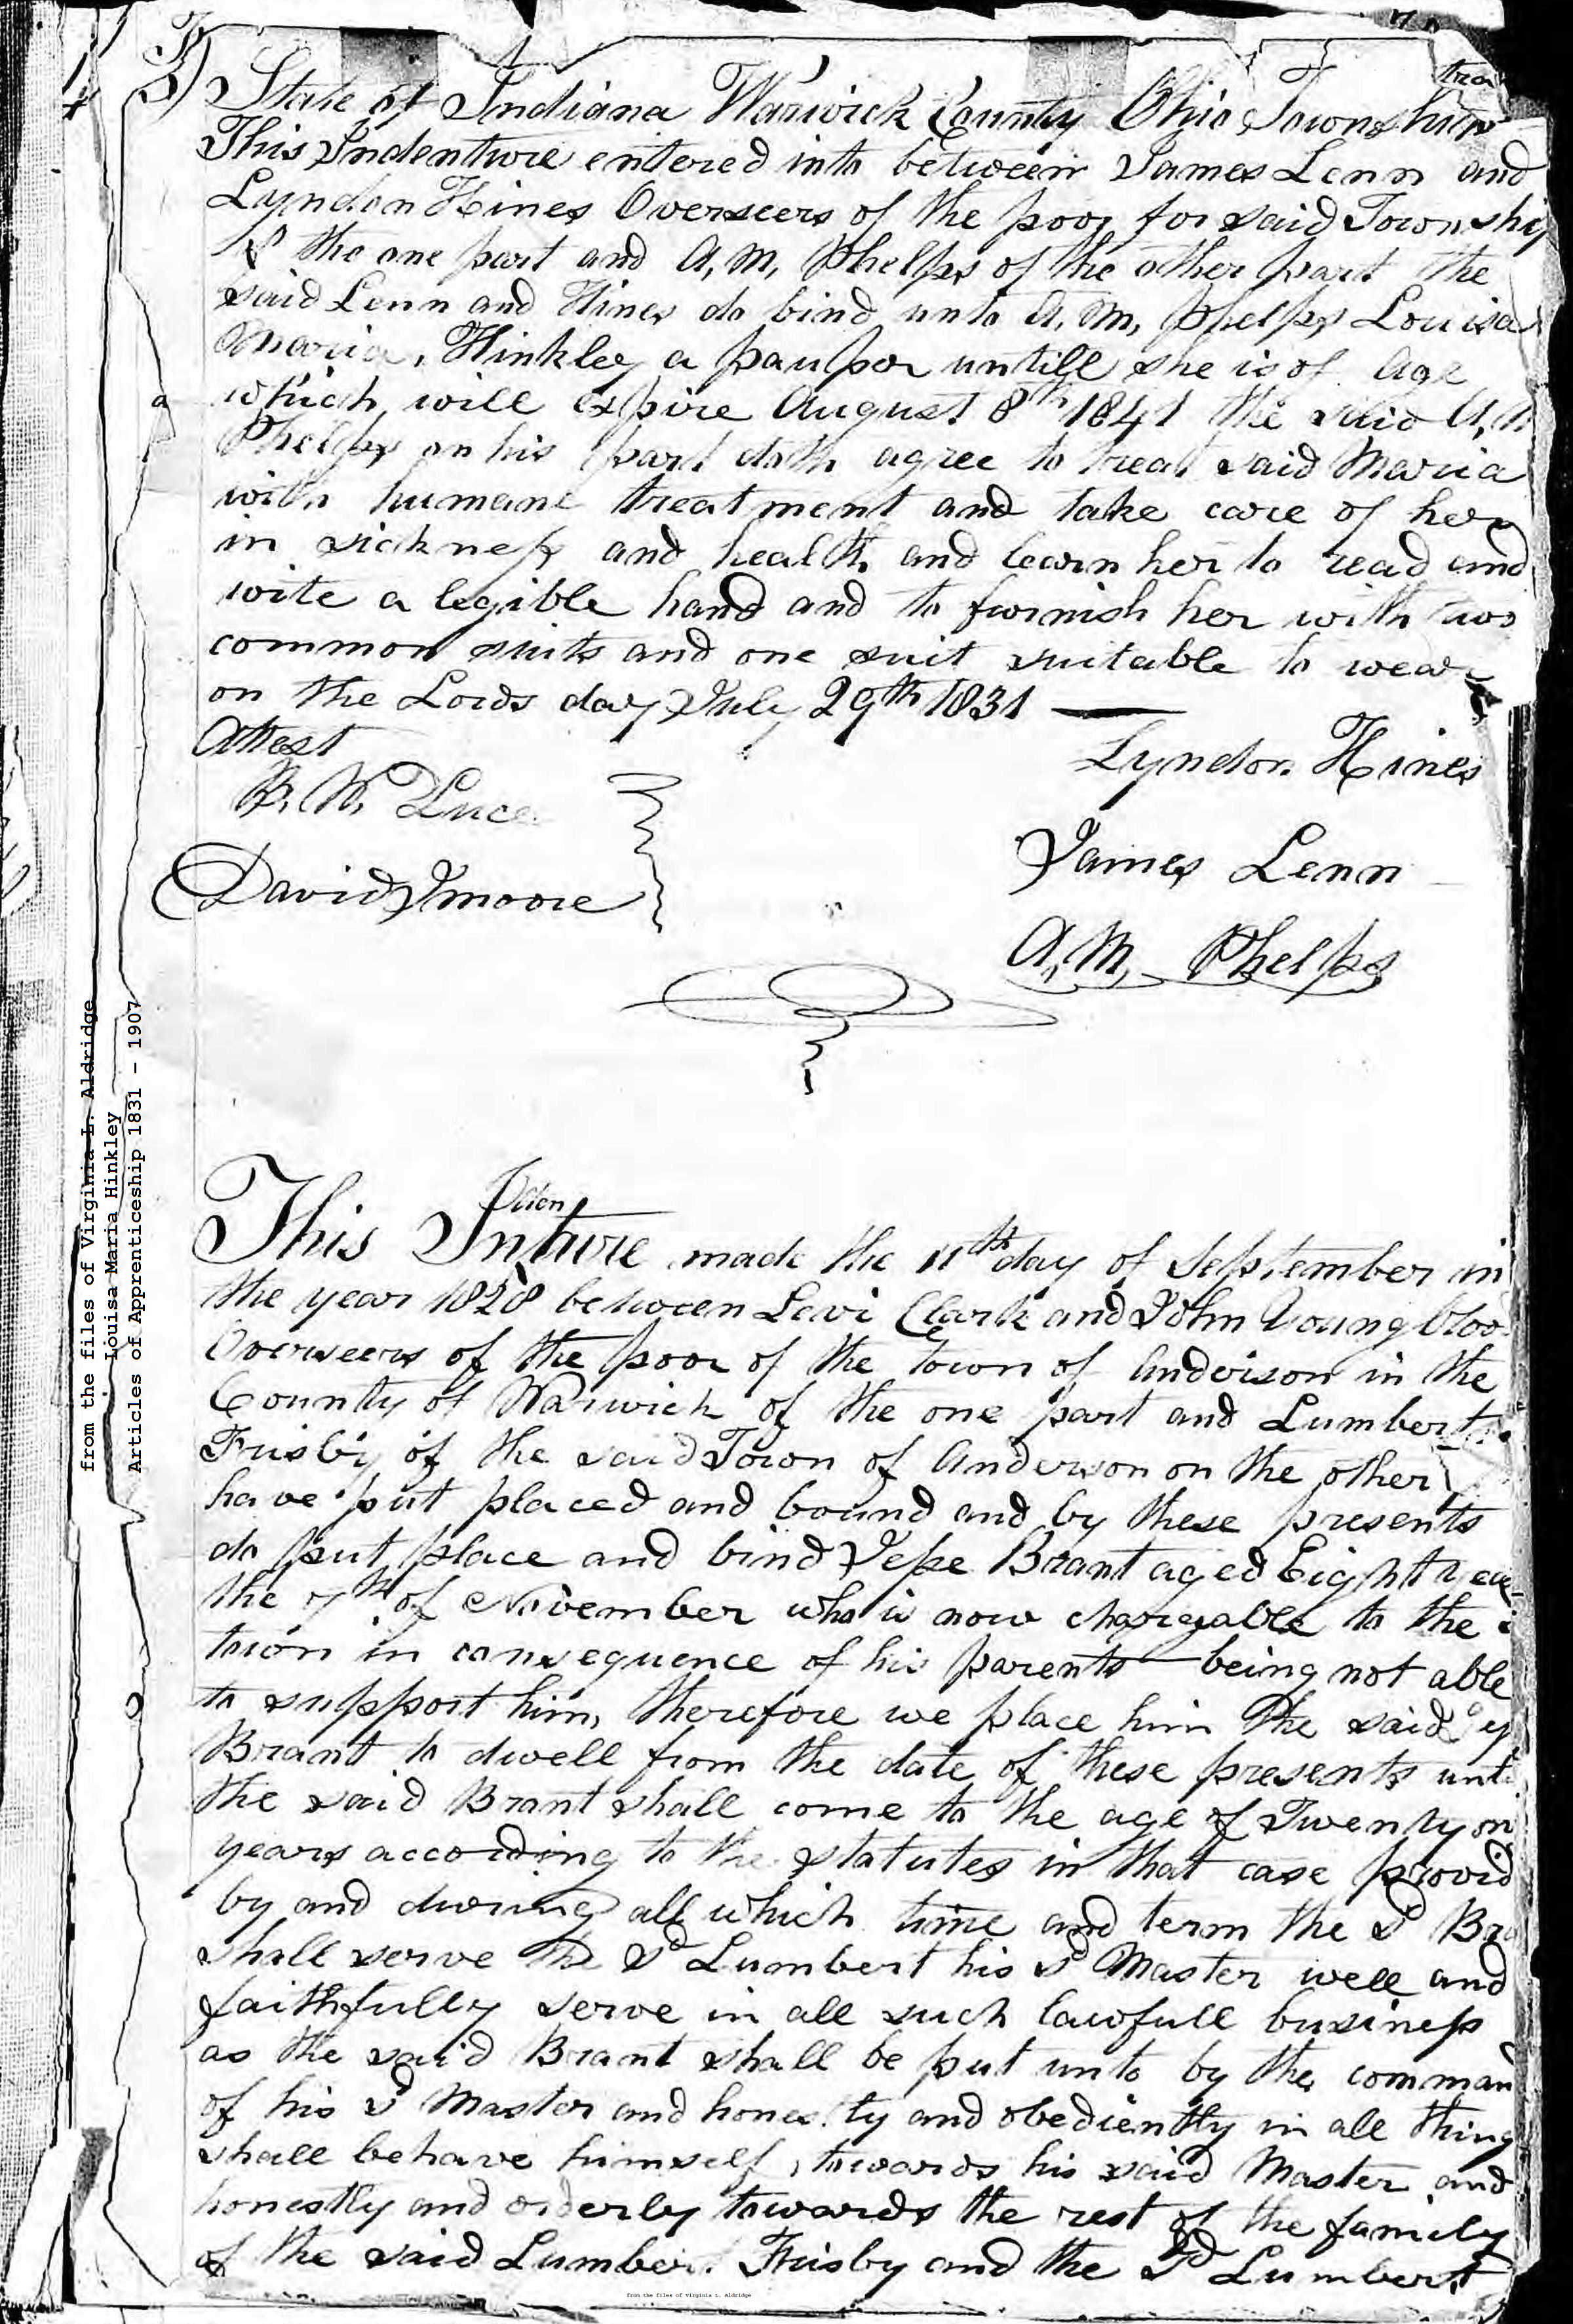 State of Indiana Warwick County Ohio Township
This Indenture entered into between James Lenn and
Lyndon Hines Overseers of the poor for said Township
of the one part and A, M, Phelps of the other part the
said Lenn and Hines do bind unto A, M, Phelps Louisa
Maria, Hinkley a paupor untill she is of Age
which will expire August 8th 1841 the said A, M
Phelps on his part doth agree to treat said Maria
with humane treatment and take care of her
in sickness and health and learn her to read and
wite a legible hand and to furnish her with two
common suits and one suit suitable to wear
on the Lords day July 29th 1831
Attest
Lyndon Hines
B. W. Luce
James Lenn
David Jmoore
A, M, Phelps
from the files of Virginia L. Aldridge
Louisa Maria Hinkley
Articles of Apprenticeship 1831 - 1907
This Inden
ture made the 11th day of September in
the year 1828 between Levi Clark and John Youngbloo
Overseers of the poor of the town of Anderson in the
County of Warwick of the one part and Lumbert
Frisby of the said Town of Anderson on the other
have put placed and bound and by these presents
do put place and bind Jesse Brant aged Eight yea
the 7th of November who is now chargable to the
town in consequence of his parents being not able
to support him, therefore we place him the said
Brant to dwell from the date of these presents unti
the said Brant shall come to the age of Twenty on
years according to the statutes in that case provid
by and during all which time and term the sd Bra
shall serve the sd Lumbert his sd Master well and
faithfully serve in all such lawfull business
as the said Brant shall be put unto by the comman
of his sd Master and honestly and obediently in all thing
shall behave himself towards his said Master and
honestly and orderly towards the rest of the family
of the said Lumbert Frisby and the sd Lumbert
from the files of Virginia L. Aldridge